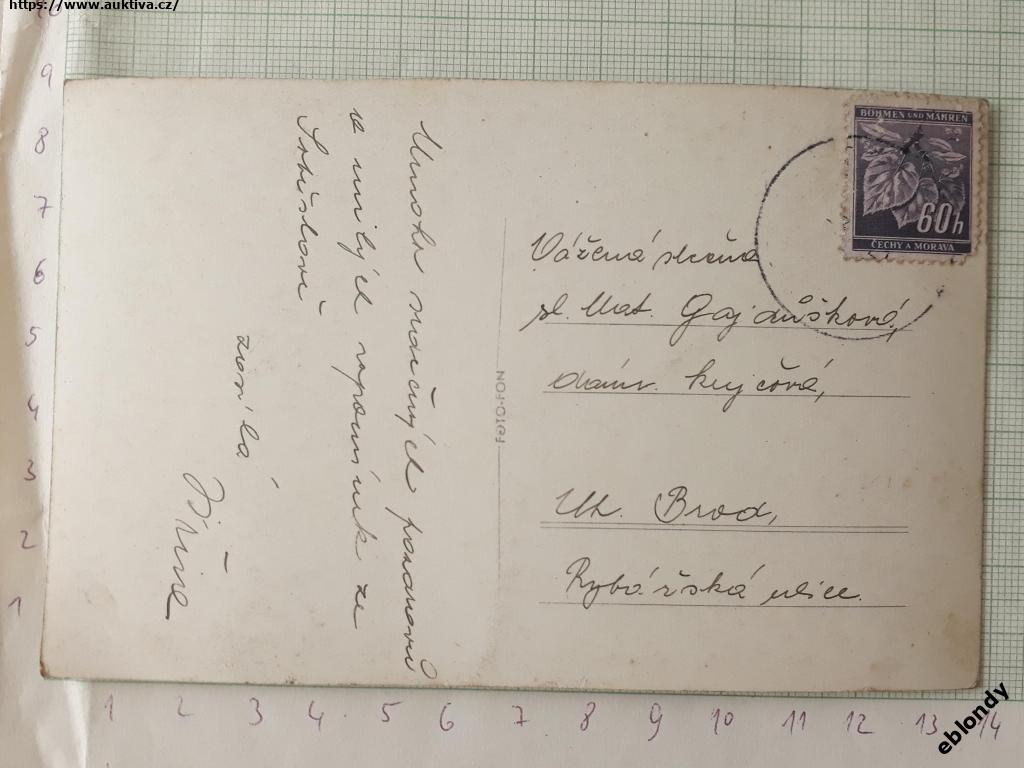 https://www.auktiva.cz/
10
9
8
7
6
5
4
3
2
1
Mnoho srdečných pozdravů
a milých vzpomínek ze
zasílá
Jiřina
FOTO-FON
BÖHMEN UND MÄHREN
60h
ČECHY A MORAVA
Vážená slečna
sl. Mat. Gajdůšková,
krejčová,
Uh. Brod,
Rybářská ulice.
1 2 3 4 5 6 7 8 9 10 11 12 13 14
eblondy